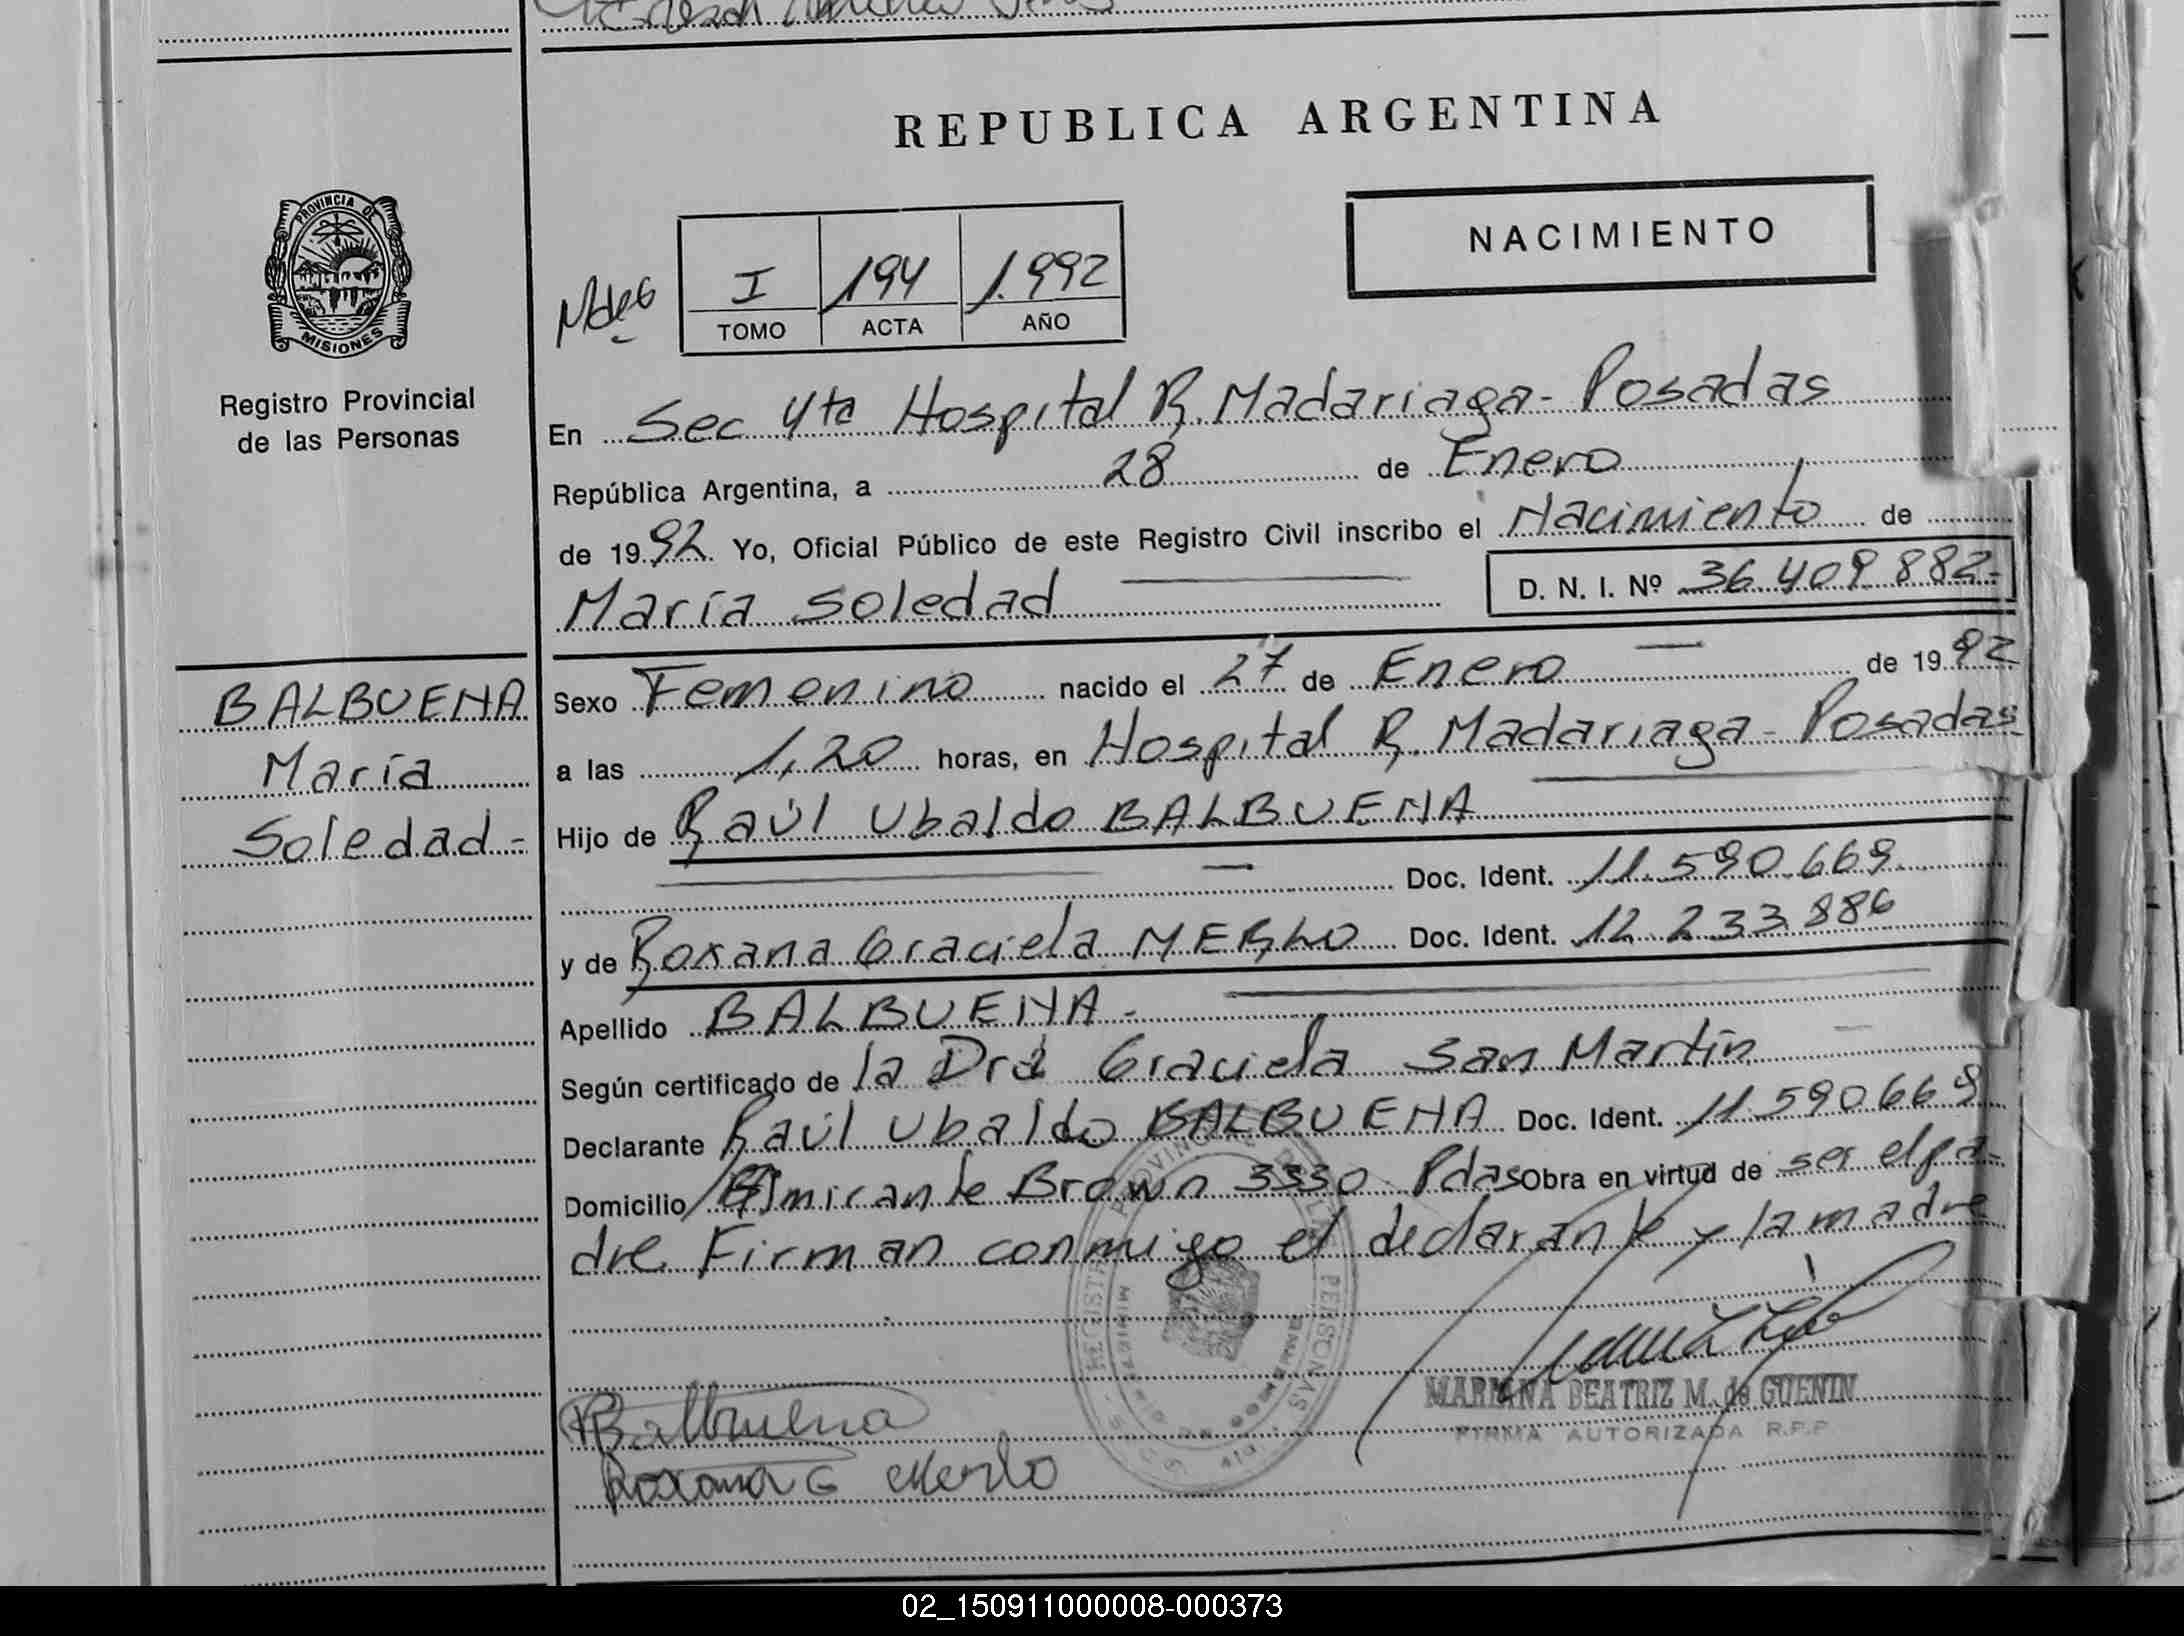 REPUBLICA ARGENTINA
NACIMIENTO
PROVINCIA DE
MISIONES
Registro Provincial
de las Personas
I 194 1.992
TOMO ACTA AÑO
En Sec 4ta Hospital R. Madariaga - Posadas
República Argentina, a 28 de Enero
de 1992 Yo, Oficial Público de este Registro Civil inscribo el Nacimiento de
María Soledad D. N. I. Nº 36.409.882-
BALBUENA
María
Soledad -
Sexo Femenino nacido el 27 de Enero de 1992
a las 1,20 horas, en Hospital R. Madariaga - Posadas
Hijo de Raúl Ubaldo BALBUENA
Doc. Ident. 11.590.669
y de Roxana Graciela MERLO Doc. Ident. 12.233.886
Apellido BALBUENA -
Según certificado de la Dra Graciela San Martín
Declarante Raúl Ubaldo BALBUENA Doc. Ident. 11.590.669
Domicilio Almirante Brown 3330 Pdas Obra en virtud de ser el pa-
dre Firman conmigo el declarante y la madre
MARIANA BEATRIZ M. de GUENIN
FIRMA AUTORIZADA R.P.P.
Balbuena
Roxana G Merlo
02_150911000008-000373